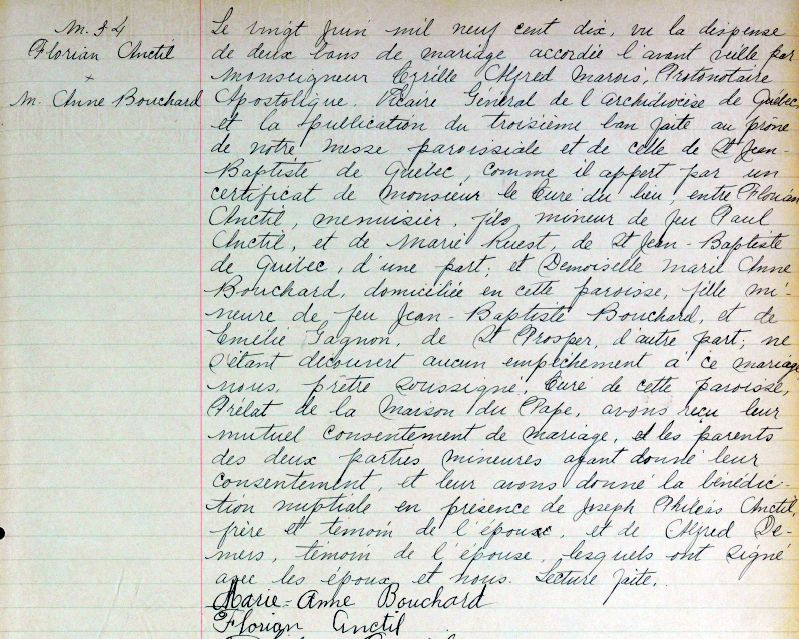 M. 54
Florian Anctil
+
M. Anne Bouchard
Le vingt Juin mil neuf cent dix, vu la dispense
de deux bans de mariage accordée l'avant veille par
Monseigneur Cyrille Alfred Marois, Protonotaire
Apostolique, Vicaire Général de l'Archidiocèse de Québec
et la publication du troisième ban faite au prône
de notre messe paroissiale et de celle de St Jean-
Baptiste de Québec, comme il appert par un
certificat de Monsieur le Curé du lieu, entre Florian
Anctil, menuisier, fils mineur de feu Paul
Anctil, et de Marie Ruest, de St Jean-Baptiste
de Québec, d'une part; et Demoiselle Marie Anne
Bouchard, domiciliée en cette paroisse, fille mi-
neure de feu Jean-Baptiste Bouchard, et de
Emélie Gagnon, de St Prosper, d'autre part; ne
s'étant découvert aucun empêchement à ce mariage
nous, prêtre soussigné, Curé de cette paroisse,
Prélat de la Maison du Pape, avons reçu leur
mutuel consentement de mariage, et les parents
des deux parties mineures ayant donné leur
consentement, et leur avons donné la bénédic-
tion nuptiale en présence de Joseph Philéas Anctil,
frère et témoin de l'époux, et de Alfred De-
mers, témoin de l'épouse, lesquels ont signé
avec les époux et nous. Lecture faite.
Marie-Anne Bouchard
Florian Anctil